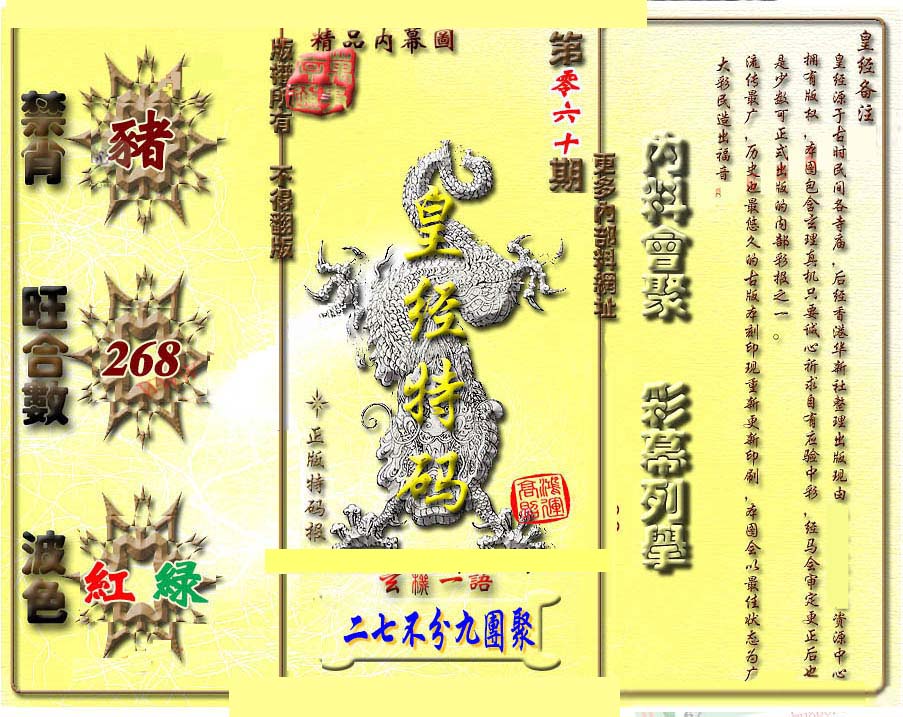 皇经备注
皇经源于古时民间各寺庙，后经香港华新社整理出版现由 资源中心
拥有版权，本图包含玄理真机只要诚心祈求自有应验中彩，经马会审定更正后也
是少数可正式出版的内部彩报之一。
流传最广，历史也最悠久的古版本刻印现重新更新印刷，本图会以最佳状态为广
大彩民造出福音
內料會聚 彩幕列舉
更多內部料網址
第零六十期
精品内幕圖
皇经特码
鴻運高照
正版特码报
玄機一語
二七不分九團聚
版權所有 不得翻版
禁肖
豬
旺合數
268
波色
紅 綠